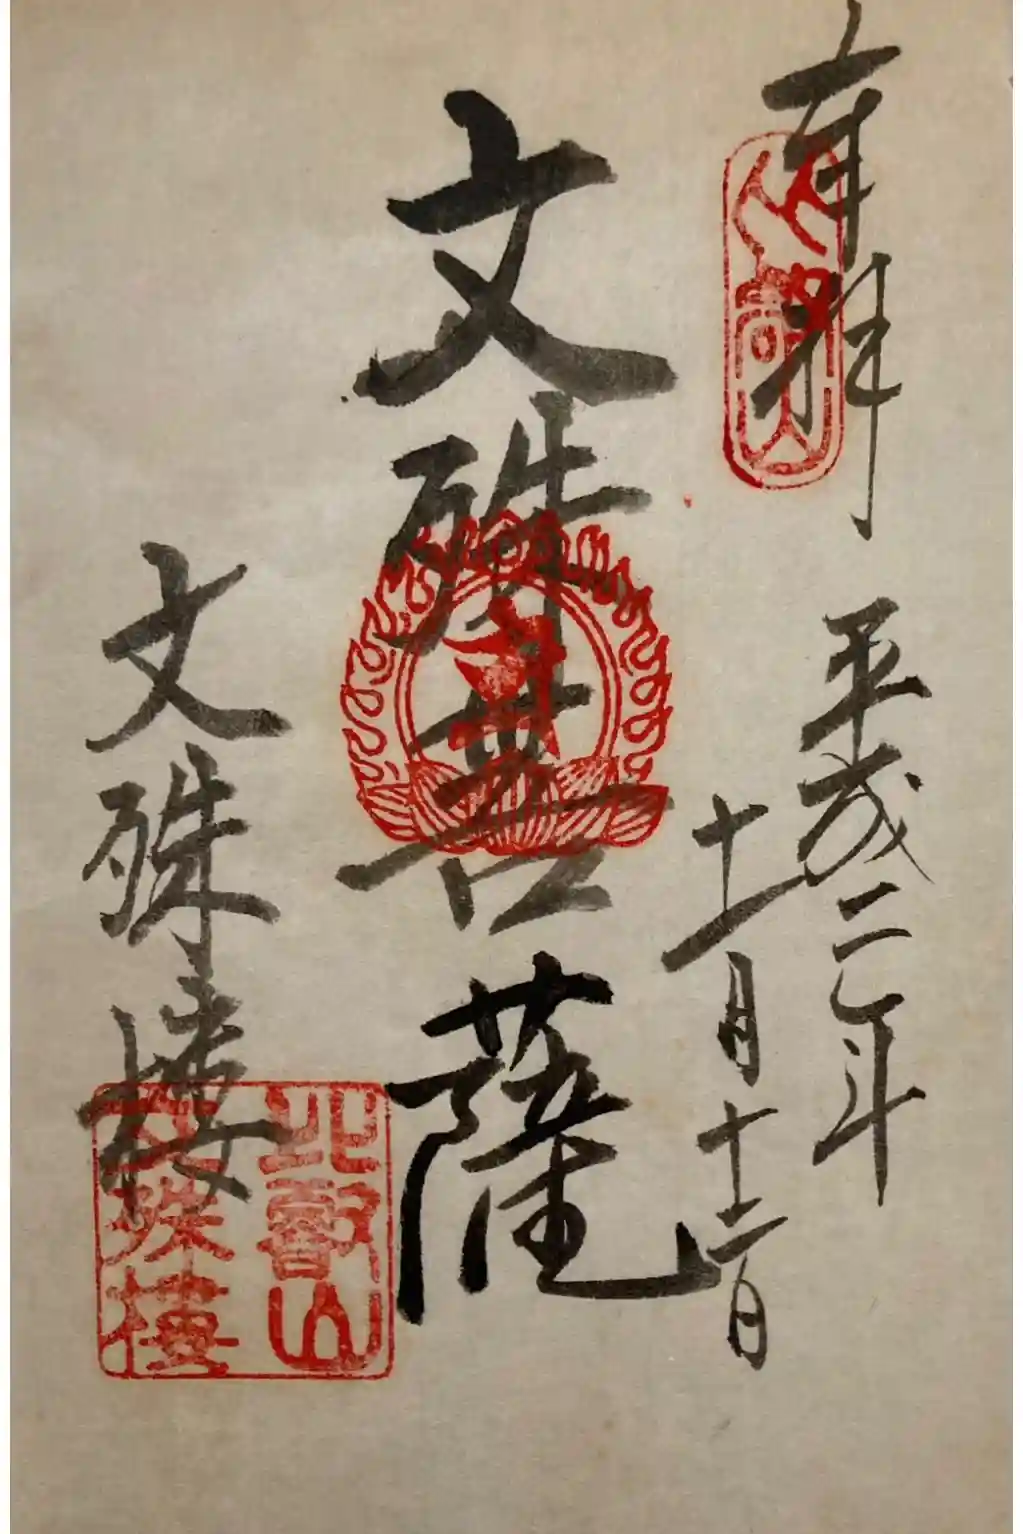 奉拝
比叡山
平成二年
十一月十二日
文殊菩薩
文殊楼
比叡山
文殊楼